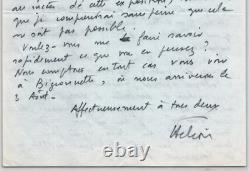 au matin de cette exposition, et
que je comprendrai sans peine que cela
ne soit pas possible.
Voulez-vous me faire savoir
rapidement ce que vous en pensez ?
Nous comptons en tout cas vous voir
à Bignonnette, où nous arrivons le
3 Août.
Affectueusement à tous deux
Hélion